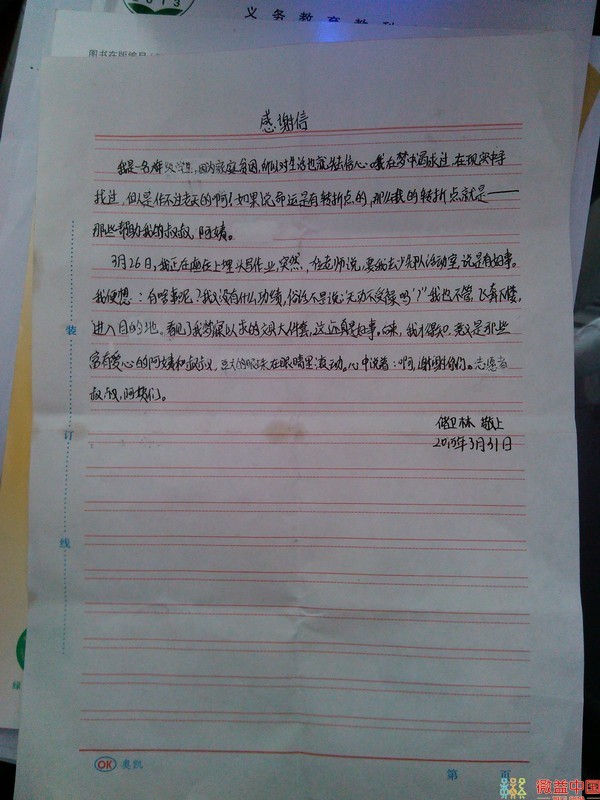 2013
义务教育教科
图书在版编目
感谢信
我是一名 学生,因为家庭贫困,所以对生活也就失去信心。我在梦中 过,在现实中寻
找过,但总是 不过老天的啊!如果说命运是有转折点的,那么我的转折点就是——
那些帮助我的叔叔,阿姨。
3月26日,我正在 上埋头写作业,突然, 老师说,要我去少先队活动室,说是有好事。
我便想:有啥事呢?我又没有什么功绩,俗话不是说“无功不受禄吗”?我也不管,飞奔下楼,
进入目的地。看见了我梦寐以求的文具大件套,这还真是好事。 来,我才得知,这又是那些
富有爱心的阿姨和叔叔, 大的眼泪在眼睛里滚动。心中说着:啊,谢谢你们。志愿者
叔叔,阿姨们。
林 敬上
2015年3月31日
装
订
线
OK 奥凯
第 页
绿
微益中国